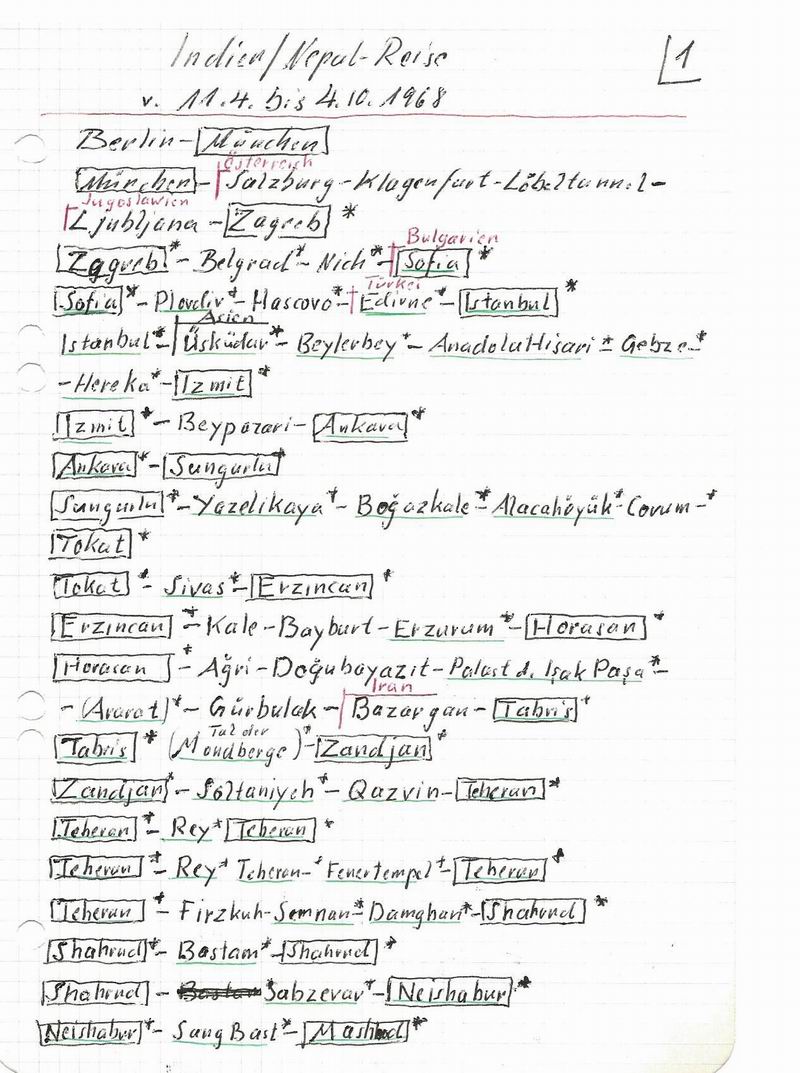 Indien/Nepal-Reise
1
v. 11.4. bis 4.10.1968
Berlin - München
Österreich
München - Salzburg - Klagenfurt - Löbeltunnel -
Jugoslawien
Ljubljana - Zagreb *
Bulgarien
Zagreb * - Belgrad * - Nich * - Sofia *
Türkei
Sofia * - Plovdiv * - Hascovo * - Edirne * - Istanbul *
Asien
Istanbul * - Üsküdar * - Beylerbey * - Anadolu Hisari * - Gebze - *
- Hereka * - Izmit *
Izmit * - Beypazari - Ankara *
Ankara * - Sungurlu *
Sungurlu * - Yazelikaya * - Boğazkale * - Alacahöyük * - Corum - *
Tokat *
Tokat * - Sivas * - Erzıncan *
Erzıncan * - Kale - Bayburt - Erzurum * - Horasan *
Horasan * - Ağri - Doğubayazit - Palast d. Işak Paşa * -
Iran
- (Ararat) * - Gürbulak - Bazargan - Tabris *
Tal der
Tabris * (Mondberge) * - Zandjan *
Zandjan * - Soltaniyeh * - Qazvin - Teheran *
Teheran * - Rey * Teheran *
Teheran * - Rey * Teheran - * Feuertempel * - Teheran *
Teheran * - Firzkuh - Semnan * - Damghan * - Shahrud *
Shahrud * - Bastam * - Shahrud *
Shahrud - Bastam * Sabzevar * - Neishabur *
Neishabur * - Sang Bast * - Mashhad *